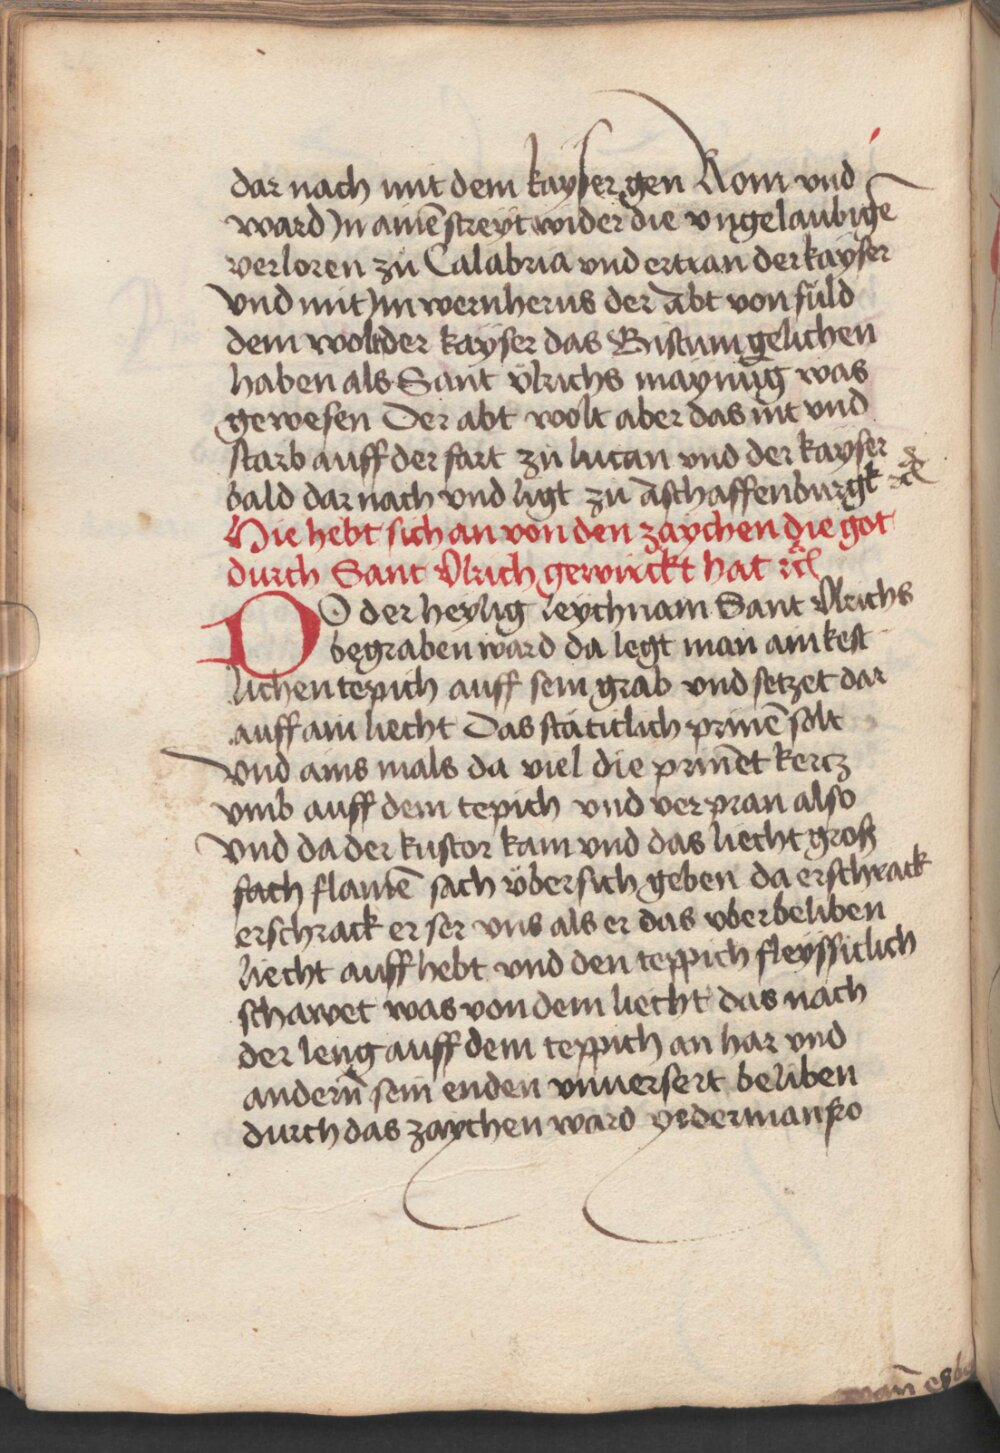 dar nach mit dem kayser gen Rom vnd
ward Jn aine͂ streyt wider die vngelaubige͂
verloren zů Calabria vnd ertran der kayser
vnd mit Jm wernherus der abt von fuld
dem wolt der kayser das Bistum gelichen
haben als Sant vͦlrichs maynu͂g was
gewesen Der abt wolt aber das nit vnd
starb auff der fart zů lucan vnd der kayser
bald dar nach vnd ligt zů aschaffenburgk ꝛc̃
Hie hebt sich an von den zaychen die got
durch Sant Vlrich gewirckt hat ꝛc̃
DO der heylig leychnam Sant Vlrichs
begraben ward da legt man ain kest
lichen tepich auff sein grab vnd setzet dar
auff ain liecht Das stäticlich prine͂ solt
vnd ains mals da viel die prine͂t kercz
vmb auff dem tepich vnd verpran also
vnd da der kustor kam vnd das liecht groß
sach flame͂ sach vͤber sich geben da erschrack
erschrack er ser vns als er das vberbeliben
liecht auff hebt vnd den teppich fleyssiclich
schawet was von dem liecht das nach
der leng auff dem teppich an har vnd
andern͂ sein enden vnuersert beliben
durch das zaychen ward yederman fro
man͂ es